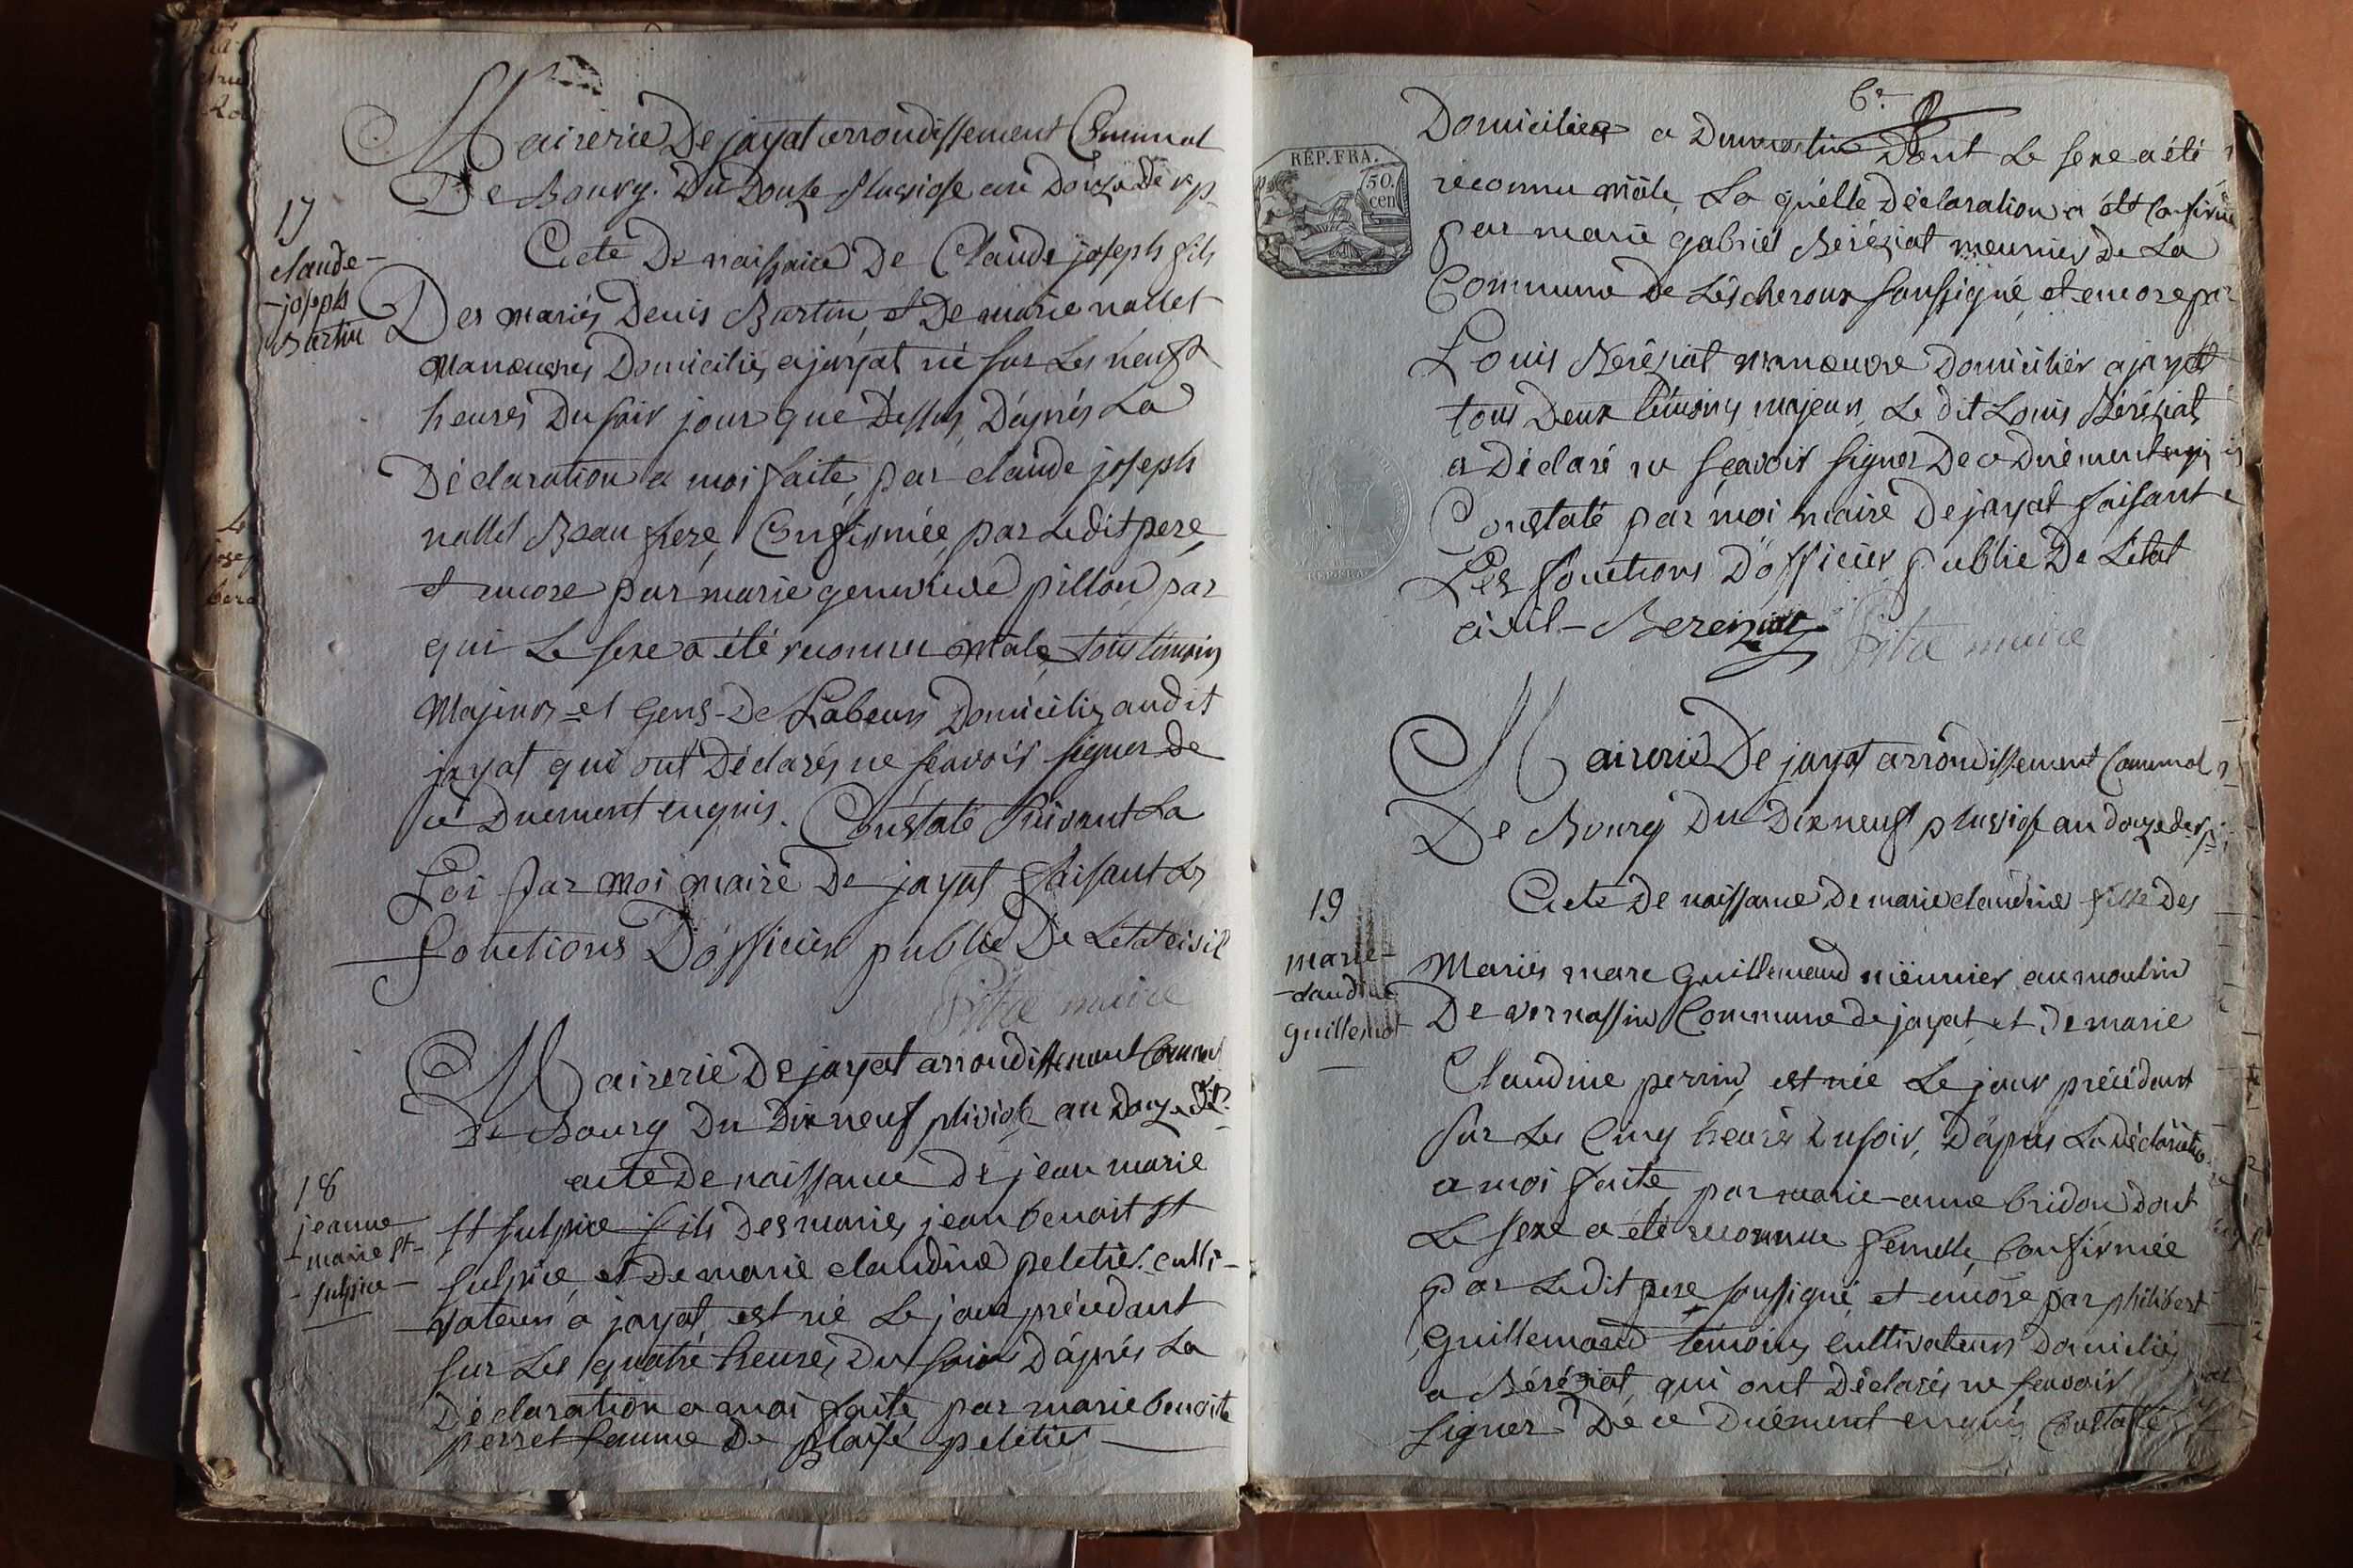 Mairerie De jayat arrondissement Communal
De Bourg. Du Douze Pluviose an Douze De rp.
17
claude-
-joseph
Bertin
Acte De naissance De Claude joseph fils
Des mariés Denis Bertin, et De marie nallet
Manoeuvres Domiciliés a jayat né sur Les neuf
heures Du soir jour que Dessus, D'après La
Déclaration a moi faite, par claude joseph
nallet Beau frere, Confirmée, par Le dit pere,
et encore par marie genevieve pillon, par
qui Le sexe a été reconnu mâle, tous témoins
Majeurs et Gens-De Labeurs Domiciliés audit
jayat qui ont Déclarés ne sçavoir signer de
ce Duement enquis. Constaté Suivant La
Loi par moi maire De jayat faisant Les
fonctions D'officier public De Letat civil
maire
Mairerie De jayat arrondissement Commnal
De Bourg Du Dix neuf pluviose an Douze De
18
jeanne
-marie st-
-sulpice-
acte De naissance De jean marie
st sulpice fils Des mariés jean benoit st
sulpice, et De marie claudine peletier. culti-
vateurs a jayat, est né Le jour précédant
sur Les quatre heures, Du soir D'après La
Déclaration a moi faite par marie benoite
perret femme De Blaise peletier
Domiciliés a Dont Le sexe a été
REP. FRA.
50.
cen
reconnu mâle, La quelle Déclaration a été Confirmée
par marie gabriel Béréziat meunier De La
Commune De Léscheroux soussigné, et encore par
Louis Béréziat manoeuvre Domicilier a jayat
tous Deux témoins majeurs, Le dit Louis Béréziat
a Déclaré ne sçavoir signer De ce Duement enquis
Constaté par moi maire De jayat faisant
Les fonctions D'officier public De Létat
civil- Bereziat maire
Mairerie De jayat arrondissement Communal
De Bourg Du Dix neuf pluviose an douze de rp.
19
marie-
-claudine
guillemot
Acte De naissance De marie claudine fille Des
Mariés marc Guillemaud mëunier au moulin
De vernassin Commune de jayat, et De marie
Claudine perrin, est née Le jour précédent
sur Les Cinq heures Du soir, D'après La Déclaration
a moi faite, par marie-anne bridon dont
Le sexe a été reconnu femelle, Confirmée
par Ledit pere soussigné, et encore par philibert
Guillemaud témoins cultivateurs Domiciliés
a Béréziat, qui ont Déclarés ne sçavoir
signer De ce Duement enquis Constaté